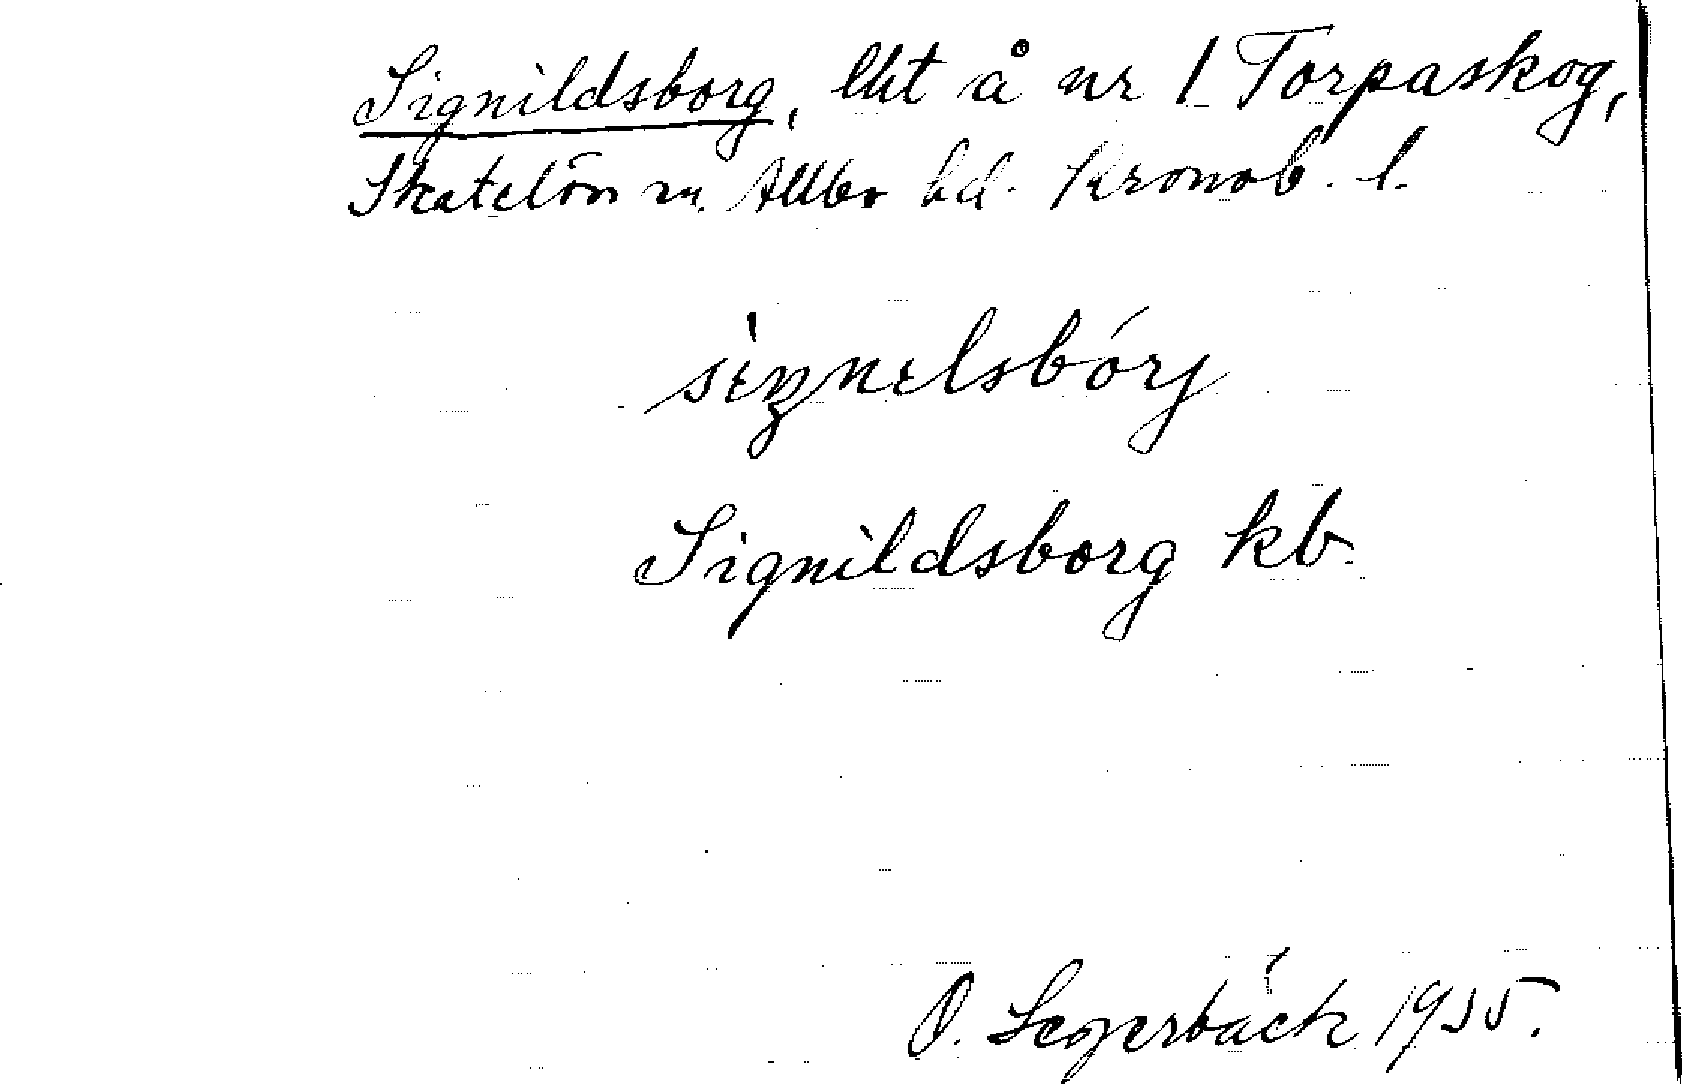 Signildsborg, lht å nr 1 Torpaskog,
Skatelöv sn. Allbo hd. Kronob. l.
siŋnelsbórj
Signildsborg kb.
O. Segerbäck 1935.